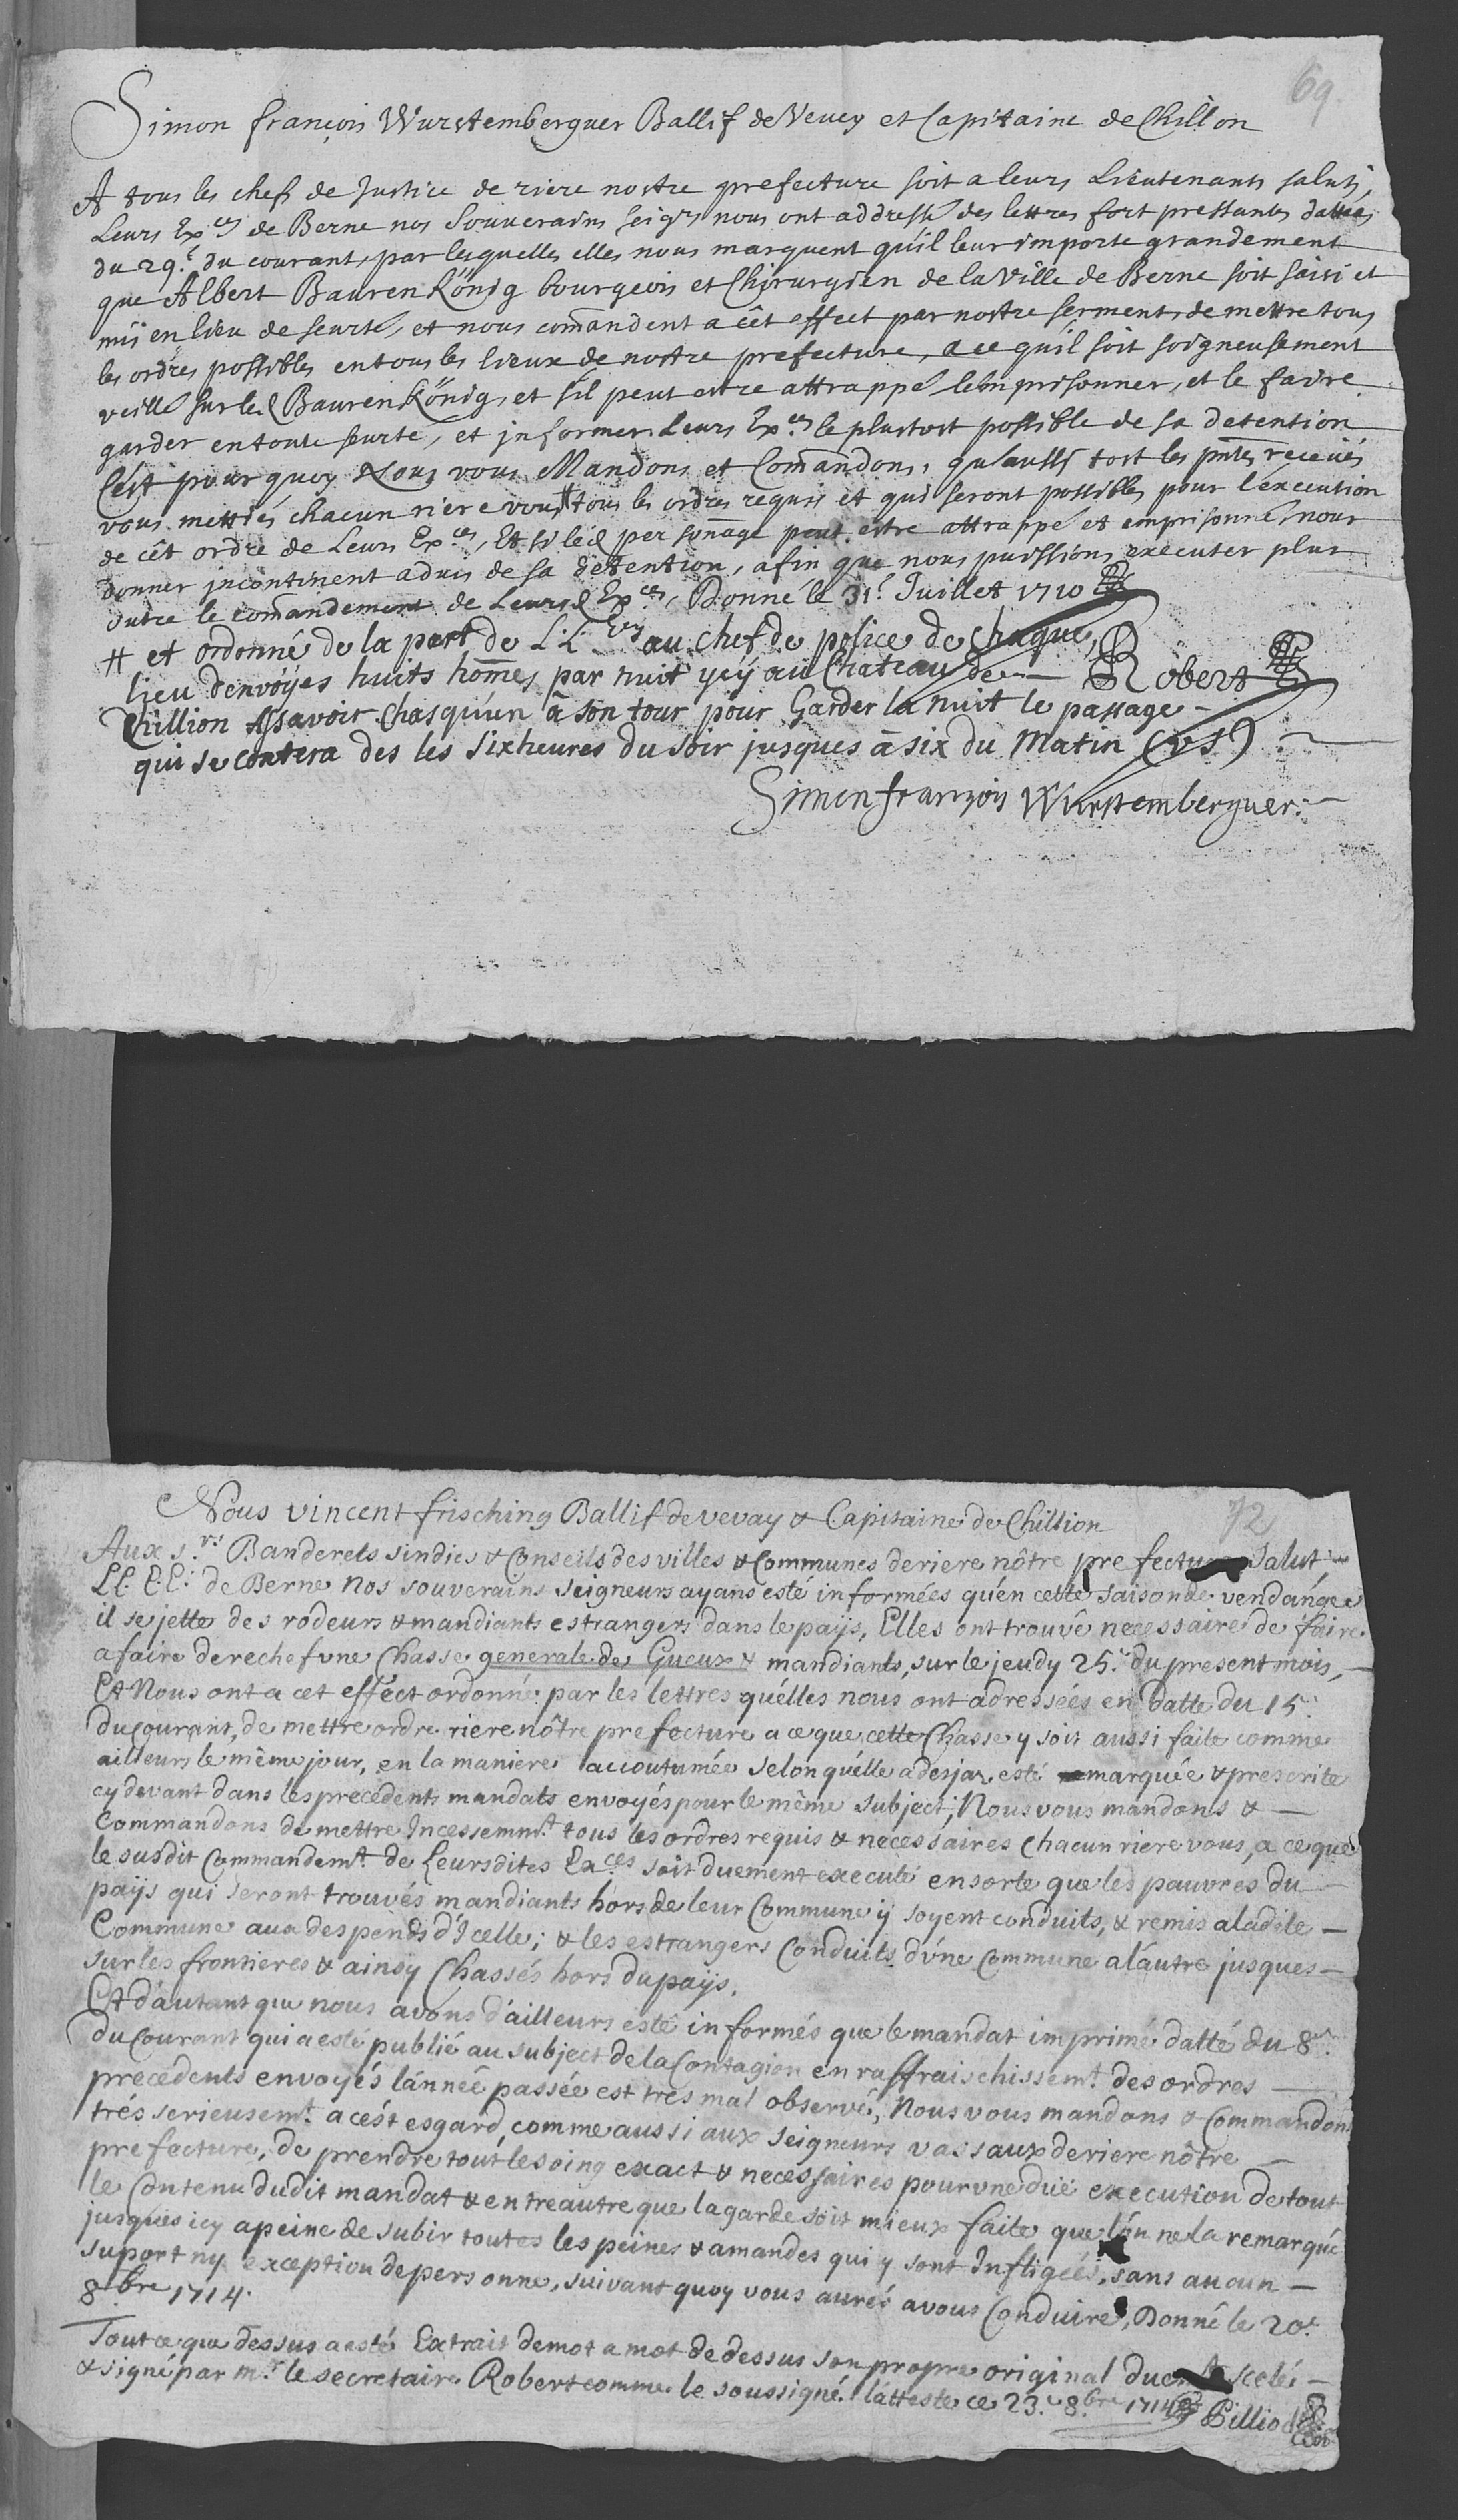 69.
Simon françois Wurstemberguer Ballif de Vevey et Capitaine de Chillon
A tous les chefs de Justice de riere nostre prefecture soit a leurs Lieutenants salut,
Leurs Ex.ces de Berne nos Souverains seigrs nous ont addressé des lettres fort pressantes dattées
du 29.e du courant, par lesquelles elles nous marquent qu'il leur importe grandement
que Albert Bauren König bourgeois et Chirurgien de la Ville de Berne soit saisi et
mis en lieu de seurté, et nous comandent a cêt effect par nostre serment, de mettre tous
les ordres possibles en tous les lieux de nostre prefecture, a ce quil soit soigneusement
veillé sur led Bauren König, et s'il peut estre attrappé l'emprisonner, et le faire
garder en toute seurté, et jnformer Leurs Ex.ces le plustost possible de sa detention
C'est pourquoy Nous vous Mandons et Comandons, qu'aussi tost les pntes receües
vous mettiés chacun riere vous # tous les ordres requis et qui seront possibles pour l'execution
de cêt ordre de Leurs Ex.ces, Et si led personage peut estre attrappé et emprisonné, nous
donner jncontinent advis de sa detention, afin que nous puissions executer plus
outre le comandement de Leursd Ex.ces, Donné le 31.e Juillet 1710
# et ordonné de la part de L.L. Ex au chef de police de chaque,
lieu d'envoÿes huits homes par nuit ycÿ au Chateau de
Robert
Chillion Asavoir Chasqu'un à son tour pour Garder la nuit le passage
qui se contera des les six heures du soir jusques à six du Matin (vs)
Simon françois Wurstemberguer.
72
Nous vincent frisching Ballif de vevay & Capitaine de Chillion
Aux s.rs Banderets sindics & Conseils des villes & Communes deriere nôtre prefecture Salut
LL. EE. de Berne Nos souverains seigneurs ayans esté informées qu'en cette saison de vendánges
il se jette des rodeurs & mandiants estrangers dans le païs, Elles ont trouvé necessaire de faire
a faire derechef vne Chasse generale de Gueux & mandiants, sur le jeudy 25.e du present mois,
Et Nous ont a cet effect ordonné par les lettres qu'elles nous ont adressées en datte du 15.e
du Courant, de mettre ordre riere nôtre prefecture a ce que cette Chasse y soit aussi faite comme
ailleurs le même jour, en la maniere accoutumée selon qu'elle a desjaz esté marquée & prescrite
cy devant dans les precedents mandats envoyés pour le même subject; Nous vous mandons &
Commandons de mettre Incessemmt tous les ordres requis & necessaires Chacun riere vous, a ce que
le susdit Commandemt. de Leursdites Ex.ces soit duement executé ensorte que les pauvres du
païs qui seront trouvés mandiants hors de leur Commune ÿ soyent conduits, & remis a ladite
Commune aux despends d'Icelle; & les estrangers Conduits d'vne Commune a láutre jusques
sur les frontieres & ainsy Chassés hors du païs.
Et d'autant que nous avons d'ailleurs esté informés que le mandat imprimé datté du 8e.
du Courant qui a esté publié au subject de la Contagion en raffraischissemt. des ordres
precedents envoyés lánnée passée est tres mal observé, Nous vous mandons & Commandons
trés serieusemt. a cést esgard, comme aussi aux seigneurs vassaux deriere nôtre
prefecture, de prendre tout le soing exact & necessaires pour vne düe execution de tout
le Contenu dudit mandat & entre autre que la garde soit mieux faite que lón ne la remarqué
jusques icy a peine de subir toutes les peines & amandes qui y sont Infligées, sans aucun
suport ny exception de personne, suivant quoy vous aurés a vous Conduire, Donné le 20e.
8.bre 1714.
Tout ce que dessus a esté Extrait de mot a mot de dessus son propre original scelé
& signé par mr. le secretaire Robert comme le soussigné l'atteste ce 23.e 8.bre 1714
Pilliod